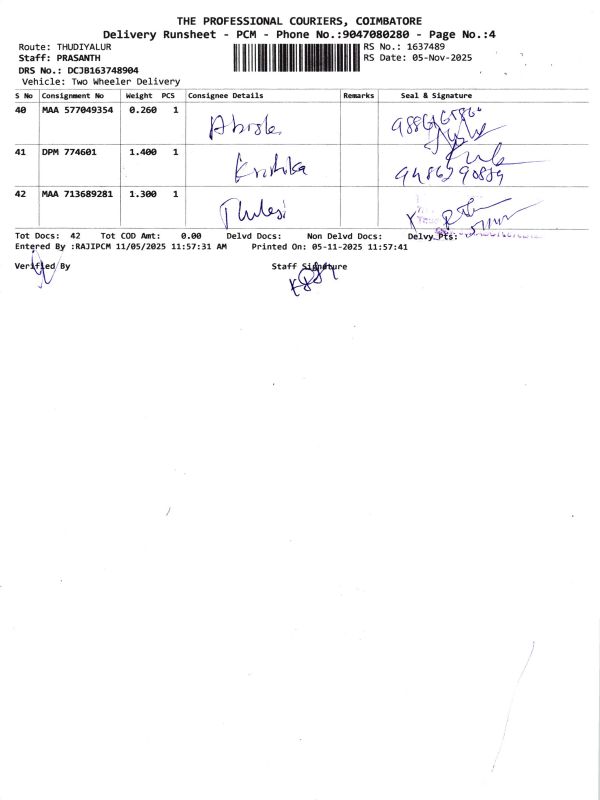 THE PROFESSIONAL COURIERS, COIMBATORE
Delivery Runsheet - PCM - Phone No.:9047080280 - Page No.:4
Route: THUDIYALUR
RS No.: 1637489
Staff: PRASANTH
RS Date: 05-Nov-2025
DRS No.: DCJB163748904
Vehicle: Two Wheeler Delivery
S No Consignment No Weight PCS Consignee Details Remarks Seal & Signature
40 MAA 577049354 0.260 1
41 DPM 774601 1.400 1 Krithika
42 MAA 713689281 1.300 1 Thulasi
Tot Docs: 42 Tot COD Amt: 0.00 Delvd Docs: Non Delvd Docs: Delvy Pts:
Entered By :RAJIPCM 11/05/2025 11:57:31 AM Printed On: 05-11-2025 11:57:41
Verified By Staff Signature